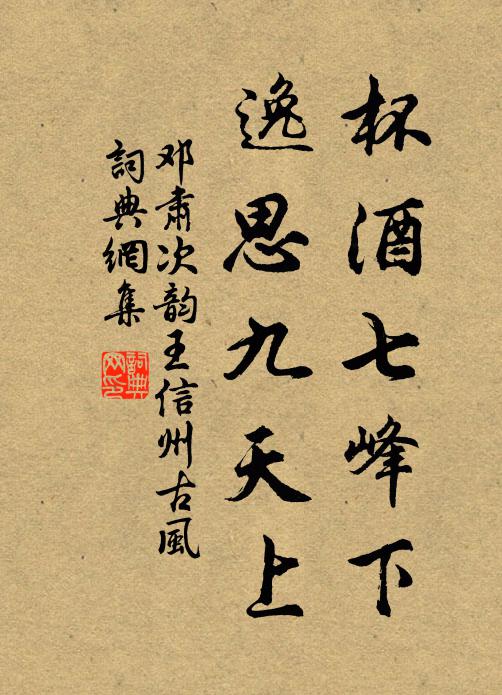 杯酒七峰下
逸思九天上
邓肃次韵王信州古風
詞典網集
詞典
网印